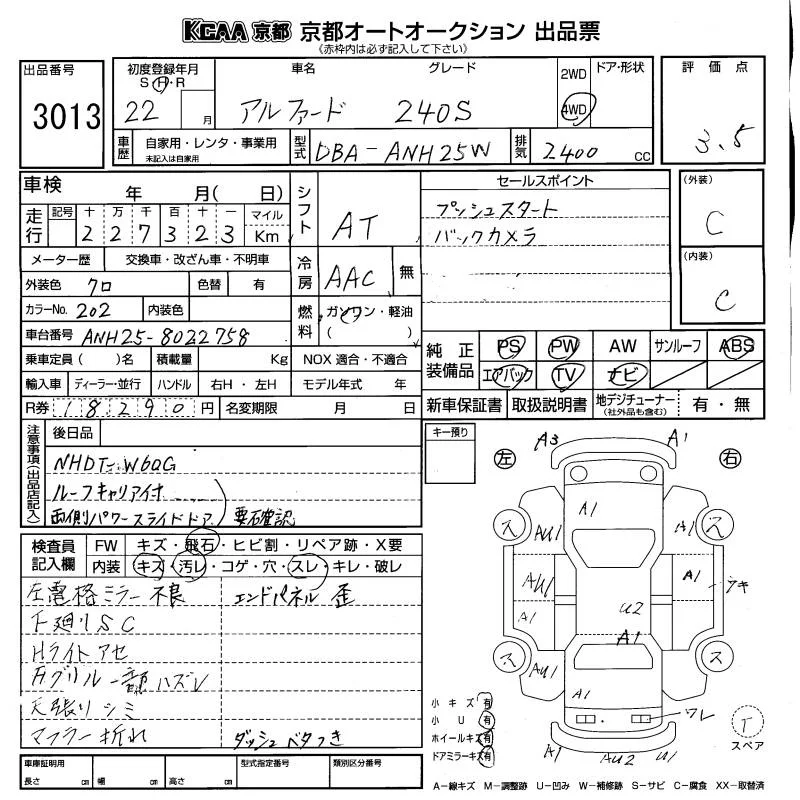 KCAA 京都 京都オートオークション 出品票
《赤枠内は必ず記入して下さい》
出品番号
3013
初度登録年月
S・H・R
22 月
車名
アルファード
グレード
240S
2WD
4WD
ドア・形状
評価点
3.5
車歴
自家用・レンタ・事業用
未記入は自家用
型式
DBA-ANH25W
排気
2400 CC
車検 年 月( 日)
走行
記号 十 万 千 百 十 一 マイル
2 2 7 3 2 3 Km
シフト
AT
メーター歴 交換車・改ざん車・不明車
冷房
AAC 無
外装色 クロ 色替 有
カラーNo. 202 内装色
燃料
ガソリン・軽油
( )
車台番号 ANH25-8022758
乗車定員( )名 積載量 Kg NOX 適合・不適合
輸入車 ディーラー・並行 ハンドル 右H・左H モデル年式 年
R券 18290円 名変期限 月 日
セールスポイント
プッシュスタート
バックカメラ
(外装)
C
(内装)
C
純正装備品
PS PW AW サンルーフ ABS
エアバック TV ナビ
新車保証書 取扱説明書 地デジチューナー(社外品も含む) 有・無
注意事項(出品店記入)
後日品
NHDT-W60G
ルーフキャリア付
両側パワースライドドア 要石確認
キー預り
検査員記入欄
FW キズ・飛石・ヒビ割・リペア跡・X要
内装 キズ・汚レ・コゲ・穴・スレ・キレ・破レ
左電格ミラー不良 エンドパネル 歪
下廻りSC
Hライトアセ
Fグリル一部ハズレ
天張りシミ
マフラー折れ ダッシュベタつき
車庫証明用
長さ cm 幅 cm 高さ cm
型式指定番号
類別区分番号
左
右
A3
A1
A1
ス
AU1
A1
ス
AU1
A1
ウキ
A1
U2
A1
ス
AU1
ス
A1
ワレ
A1
AU2
U1
T
スペア
小キズ 有
小U 有
ホイールキズ 有
ドアミラーキズ 有
A-線キズ M-調整跡 U-凹み W-補修跡 S-サビ C-腐食 XX-取替済